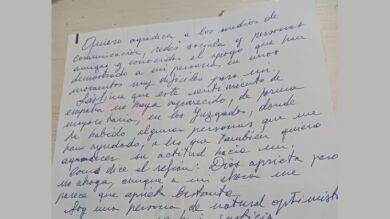 Quiero agradecer a los medios de
comunicación, redes sociales y personas
amigas y conocidas el apoyo que han
demostrado a mi persona, en unos
momentos muy difíciles para mi.
Lástima que este sentimiento de
empatía no haya aparecido, de forma
mayoritaria, en los Juzgados, donde
he habido algunas personas que me
han ayudado, a las que también quiero
agradecer su actitud hacia mi.
Como dice el refrán: Dios aprieta pero
no ahoga, aunque a mi ahora me
parece que aprieta bastante.
Soy una persona de natural optimista
justicia